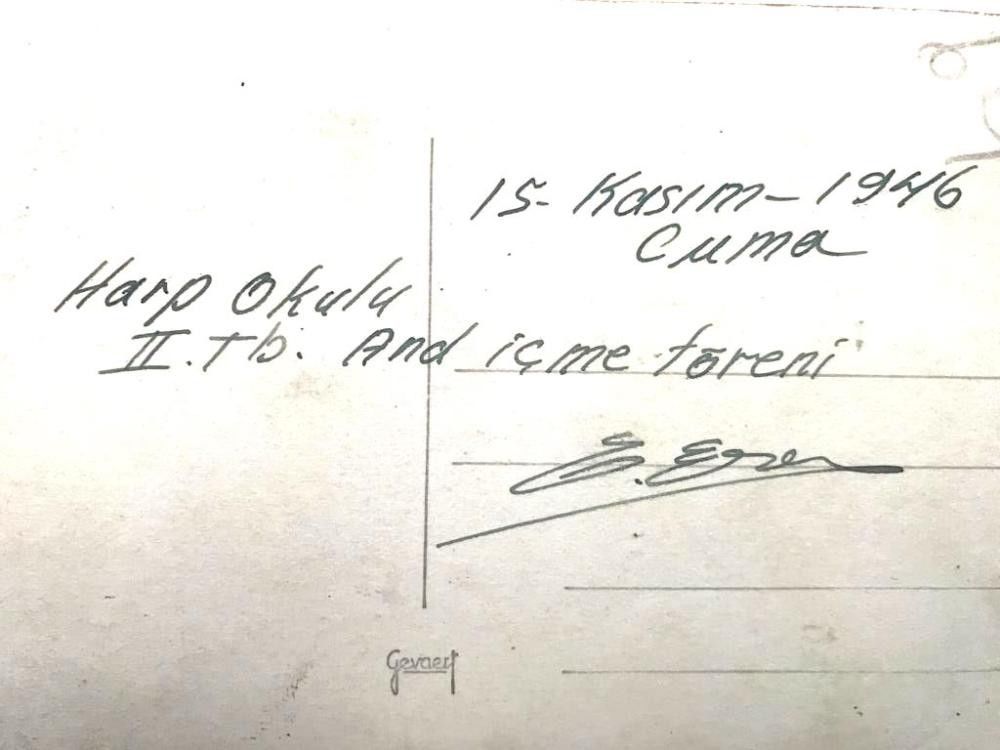 15- Kasım - 1946
Cuma
Harp Okulu
II. Tb. And içme töreni
Gevaert